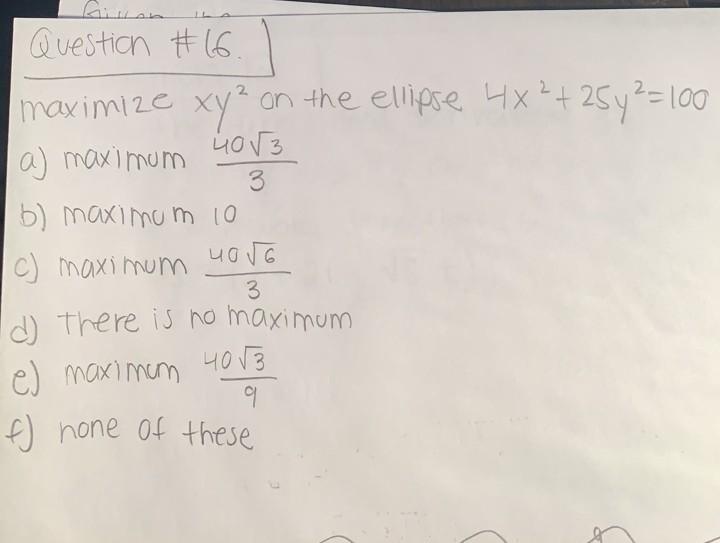 Question #16.
maximize xy² on the ellipse 4x²+25y²=100
a) maximum 40√3/3
b) maximum 10
c) maximum 40√6/3
d) there is no maximum
e) maximum 40√3/9
f) none of these